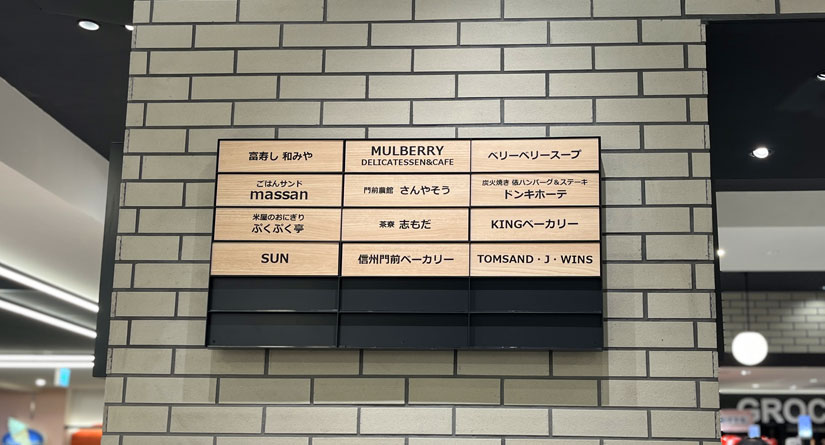 富寿し 和みや
MULBERRY
DELICATESSEN&CAFE
ベリーベリースープ
ごはんサンド
massan
門前農館 さんやそう
炭火焼き 俵ハンバーグ&ステーキ
ドンキホーテ
米屋のおにぎり
ぷくぷく亭
茶寮 志もだ
KINGベーカリー
SUN
信州門前ベーカリー
TOMSAND・J・WINS
GROC